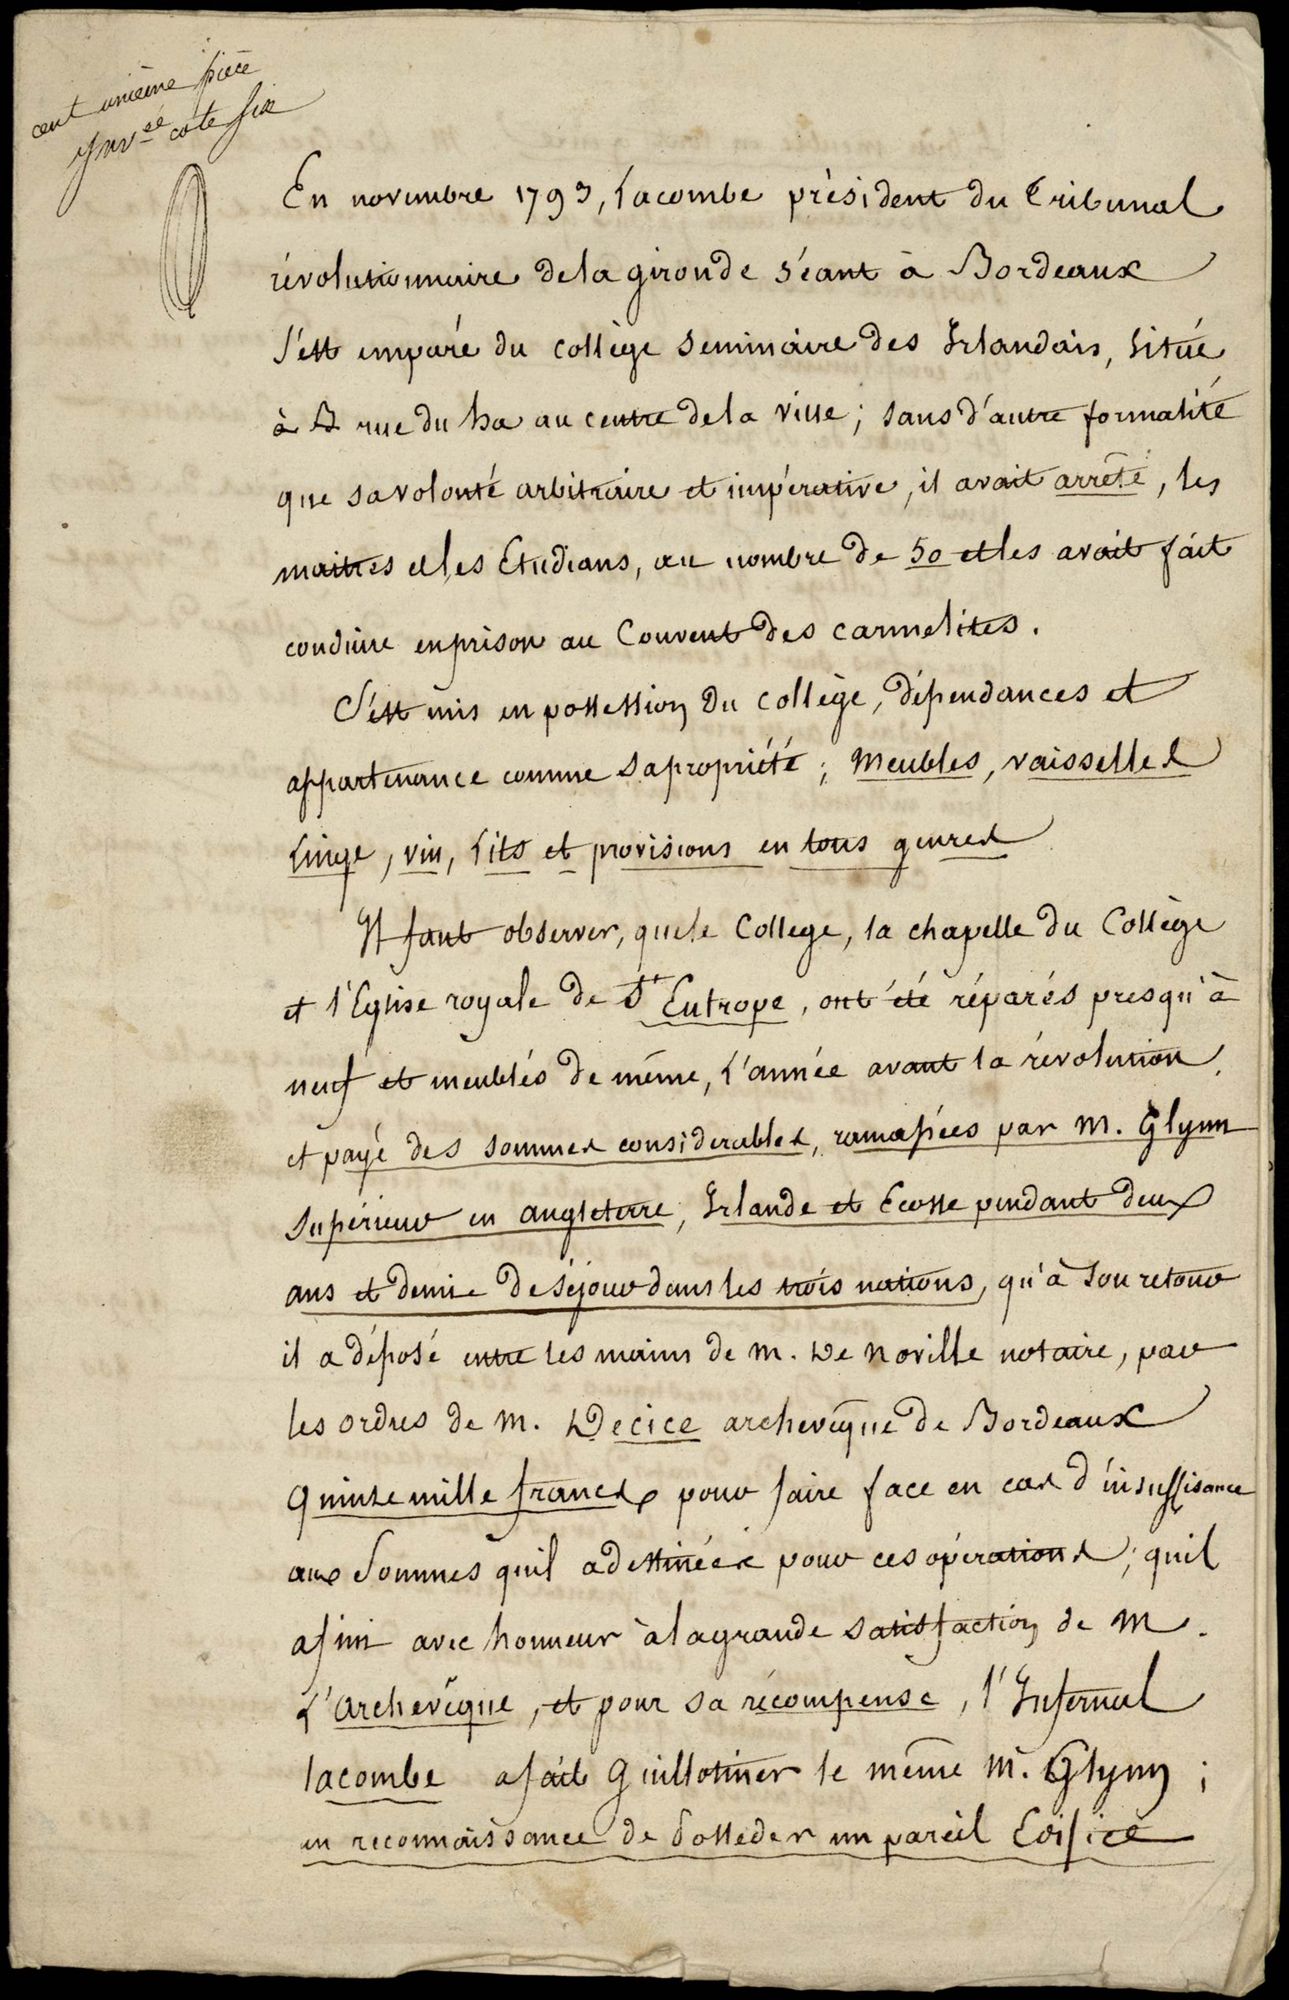 cent unième pièce
Inv.sé cote six
En novembre 1793, Lacombe président du Tribunal
révolutionnaire de la gironde séant à Bordeaux
s'est emparé du collège seminaire des Irlandais, situé
à B rue du ha au centre de la ville; sans d'autre formalité
que sa volonté arbitraire et impérative, il avait arrêté, les
maitres et les Etudians, au nombre de 50 et les avait fait
conduire en prison au Couvent des carmelites.
S'est mis en possession du collège, dépendances et
appartenance comme sa propriété; meubles, vaisselles
linge, vin, lits et provisions en tous genres
Il faut observer, que le College, la chapelle du Collège
et l'Eglise royale de St Eutrope, ont été réparés presqu'à
neuf et meublés de même, l'année avant la révolution,
et payé des sommes considerables, ramassées par M. Glynn
supérieur en angleterre, Irlande et Ecosse pendant deux
ans et demie de séjour dans les trois nations, qu'à son retour
il a déposé entre les mains de M. De Noville notaire, par
les ordres de M. Decice archevêque de Bordeaux
quinze mille francs pour faire face en cas d'insuffisance
aux sommes quil a destinées pour ces opérations; quil
a fini avec honneur à la grande satisfaction de M.
L'archevêque, et pour sa récompense, l'Infernal
lacombe a fait Guillotiner le même M. Glynn;
en reconnaissance de posseder un pareil Edifice